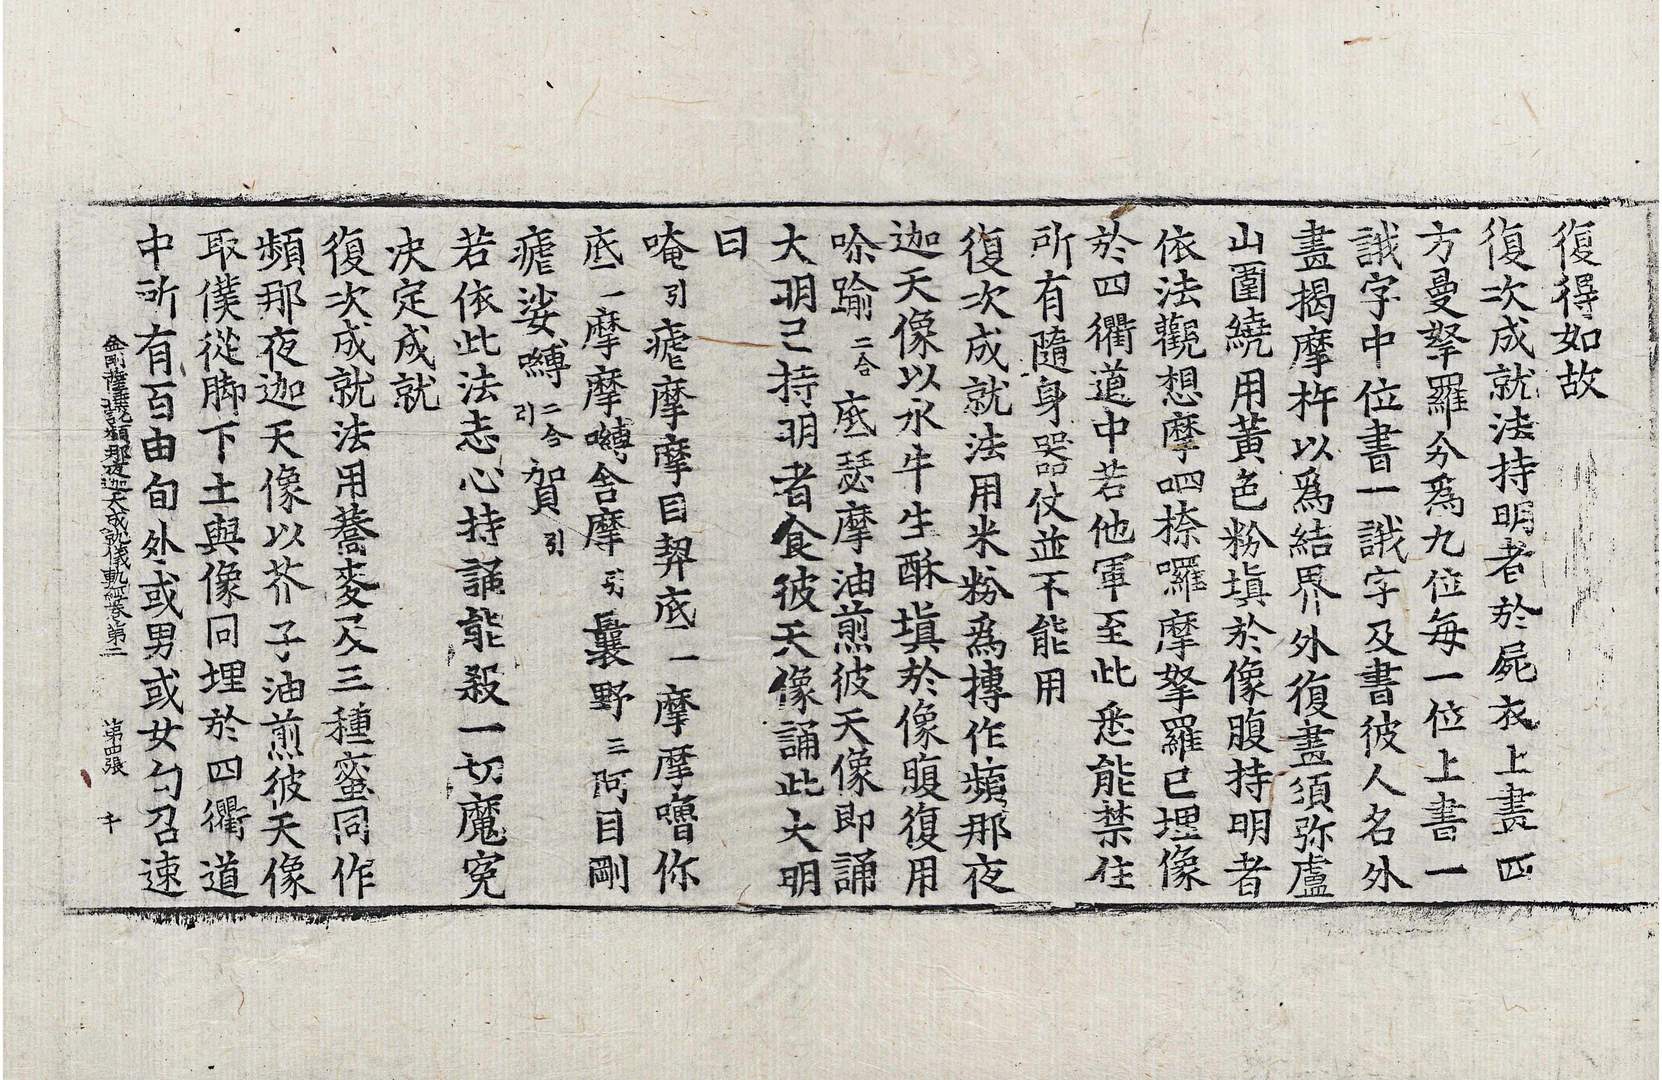 復得如故
復次成就法持明者於屍衣上畫四
方曼拏羅分爲九位每一位上書一
誐字中位書一誐字及書彼人名外
畫揭摩杵以爲結界外復畫須弥盧
山圍繞用黃色粉塡於像腹持明者
依法觀想摩呬捺囉摩拏羅已埋像
於四衢道中若他軍至此悉能禁住
所有隨身器仗並不能用
復次成就法用米粉爲摶作蘋那夜
迦天像以水牛生酥塡於像腹復用
唋踰二合底瑟摩油煎彼天像即誦
大明已持明者食彼天像誦此大明
曰
唵引瘧摩摩目契底一摩摩嚕你
底一摩摩嚩舍摩引曩野三阿目剛
瘧娑嚩二合引賀引
若依此法志心持誦能殺一切魔冤
決定成就
復次成就法用蕎麥及三種蜜同作
頻那夜迦天像以芥子油煎彼天像
取僕從脚下土與像同埋於四衢道
中所有百由旬外或男或女勾召速
金剛薩埵說頻那夜迦天成就儀軌經卷第二 第四張